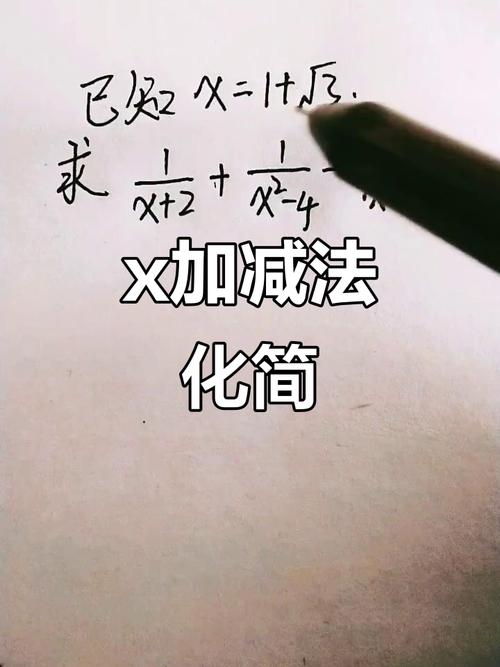 已知 x=1+√3.
求 1/(x+2) + 1/(x²-4) -
x加减法
化简